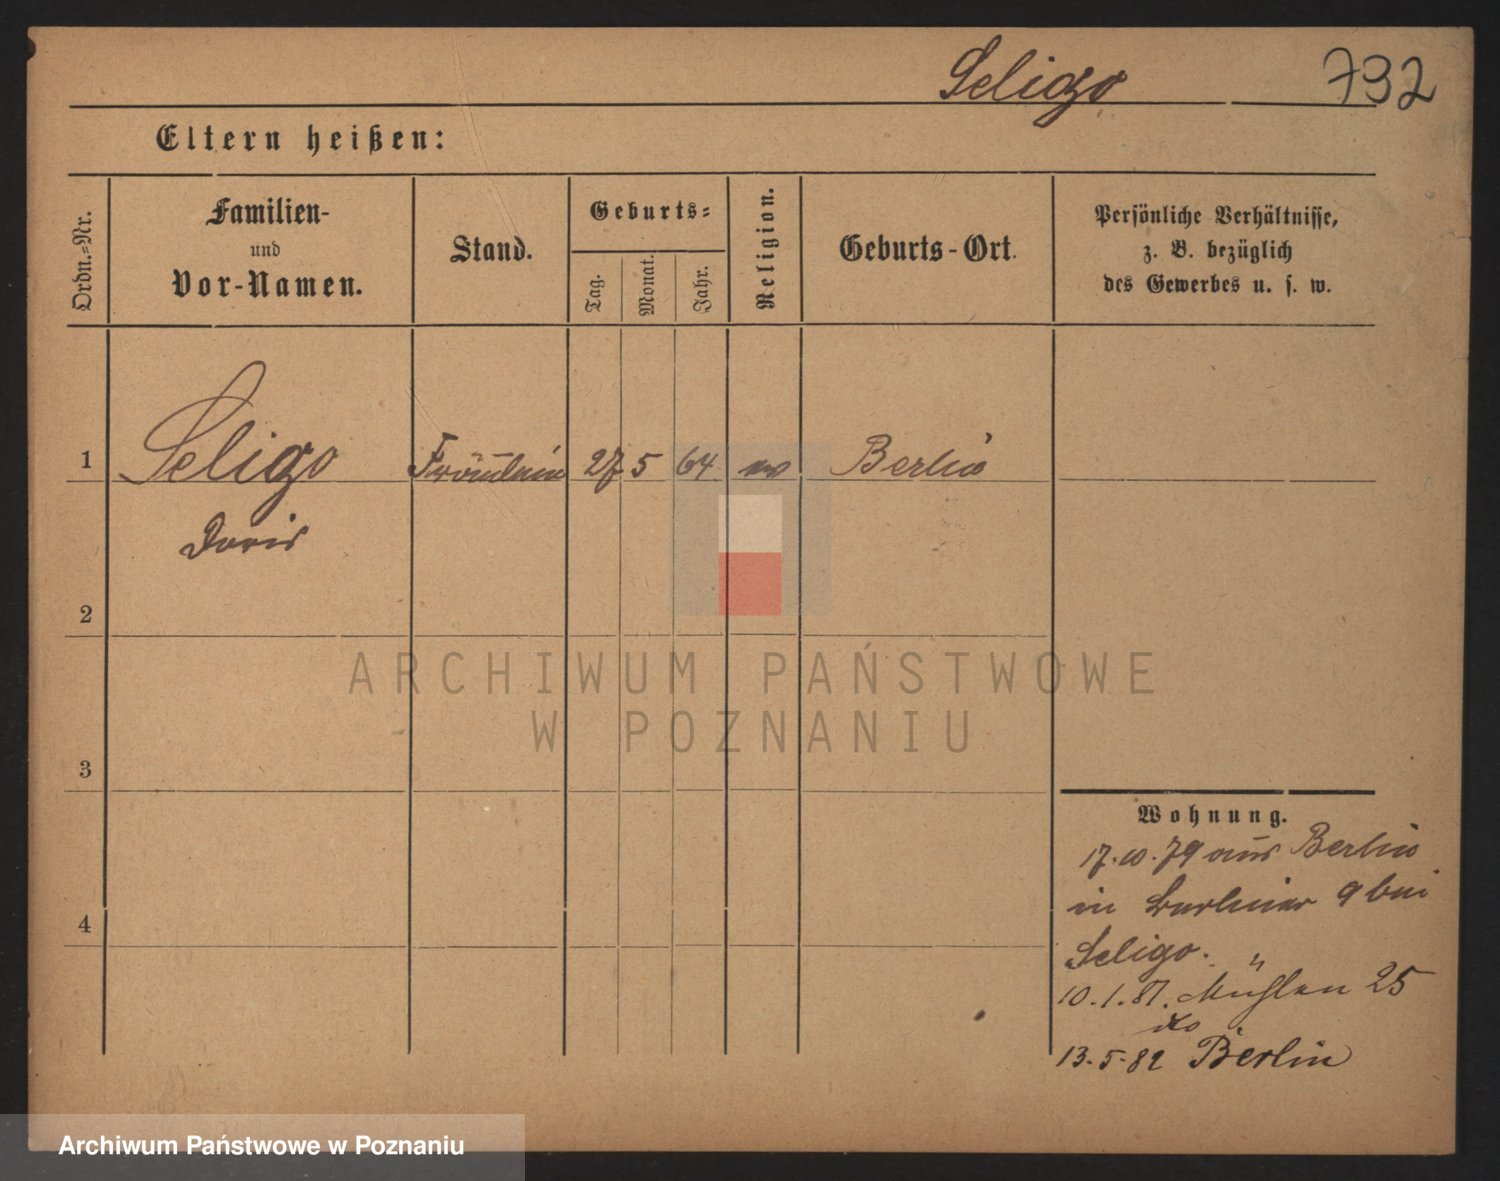 Seligo 732
Eltern heißen:
Ordn.=Nr.
Familien-
und
Vor-Namen.
Stand.
Geburts=
Tag.
Monat.
Jahr.
Religion.
Geburts-Ort.
Persönliche Verhältnisse,
z. B. bezüglich
des Gewerbes u. s. w.
1 Seligo Fräulein 27 5 64 Berlin
Doris
2
3
4
Wohnung.
17.10.79 aus Berlin
in Berliner 9 bei
Seligo.
10.1.81. Mühlen 25
do
13.5.82 Berlin
ARCHIWUM PAŃSTWOWE
W POZNANIU
Archiwum Państwowe w Poznaniu